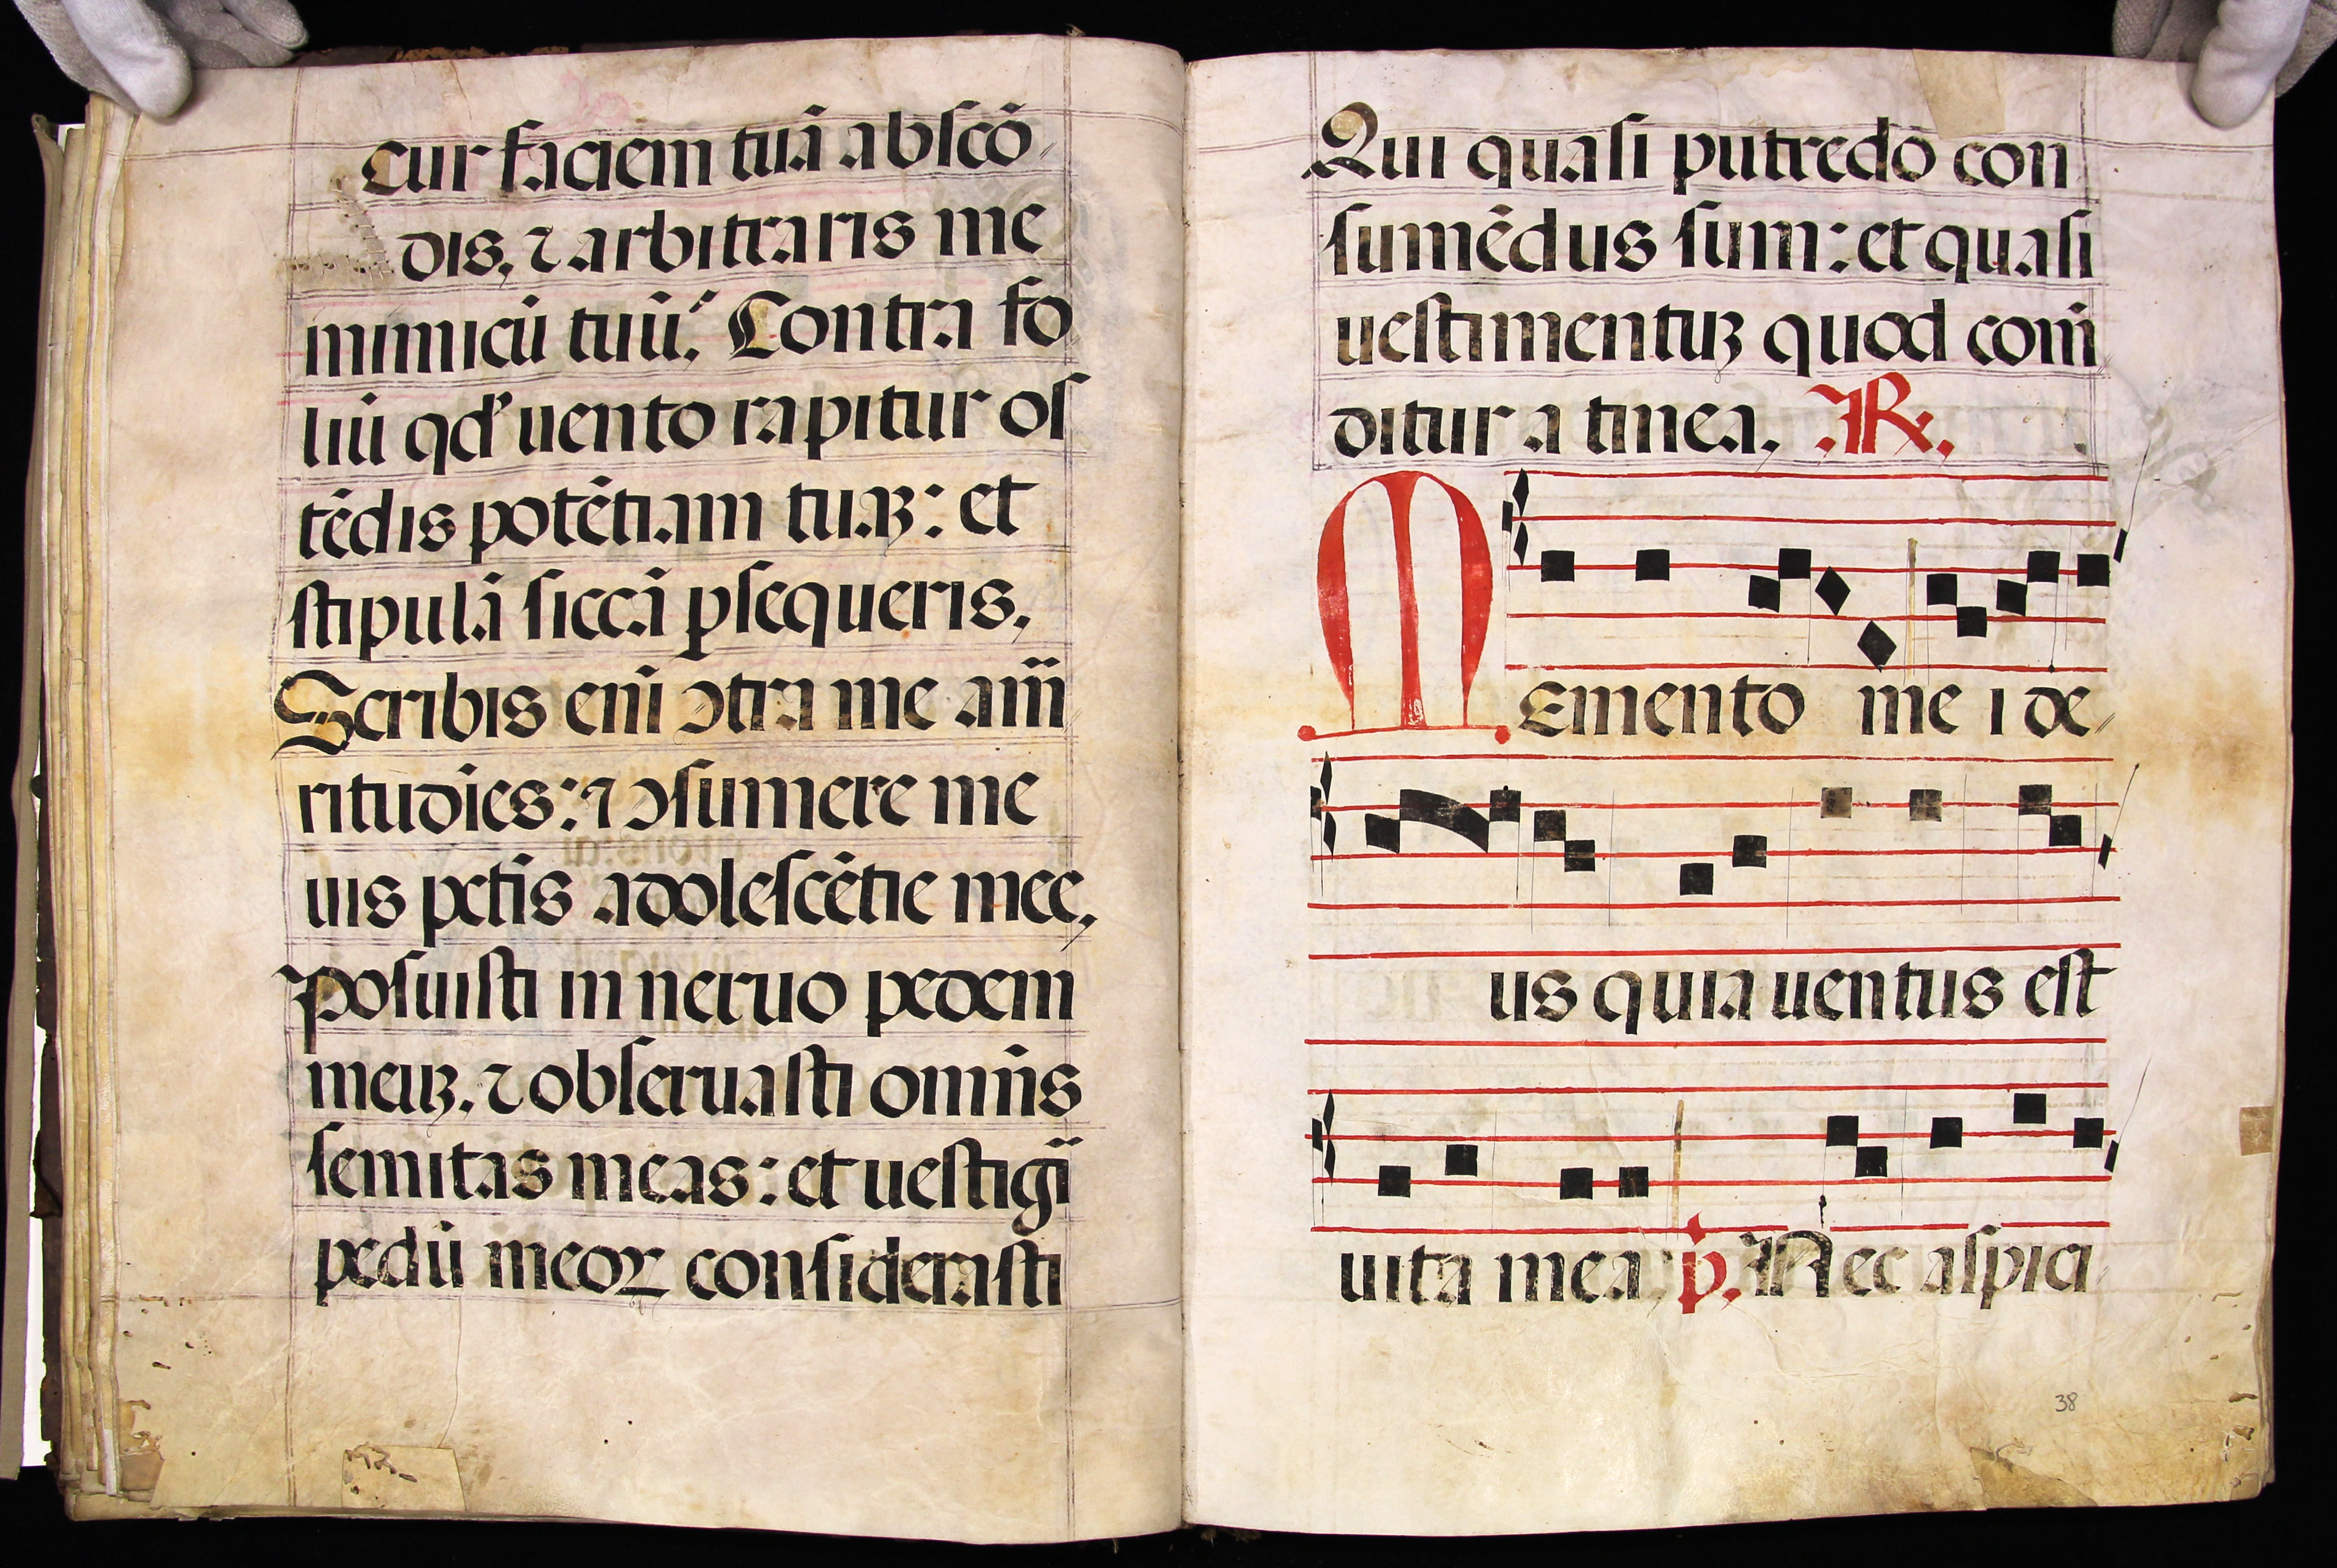 cur faciem tuā abscō
dis, ⁊ arbitraris me
inimicū tuū? Contra fo
liū qđ uento rapitur os
tēdis potētiam tuaꝫ: et
stipulā siccā ꝑsequeris.
Scribis enī ↄtra me am̄
ritudies: ⁊ ↄsumere me
uis pctīs adolescētie mee,
Posuisti in neruo pedem
meuꝫ. ⁊ obseruasti omn̄s
semitas meas: et uestigī
pedū meoꝝ considerasti
Qui quasi putredo con
sumēdus sum: et quasi
uestimentuꝫ quod com̄
ditur a tinea. ℟.
MEmento me i de
us quia uentus est
uita mea p. Nec aspici
38